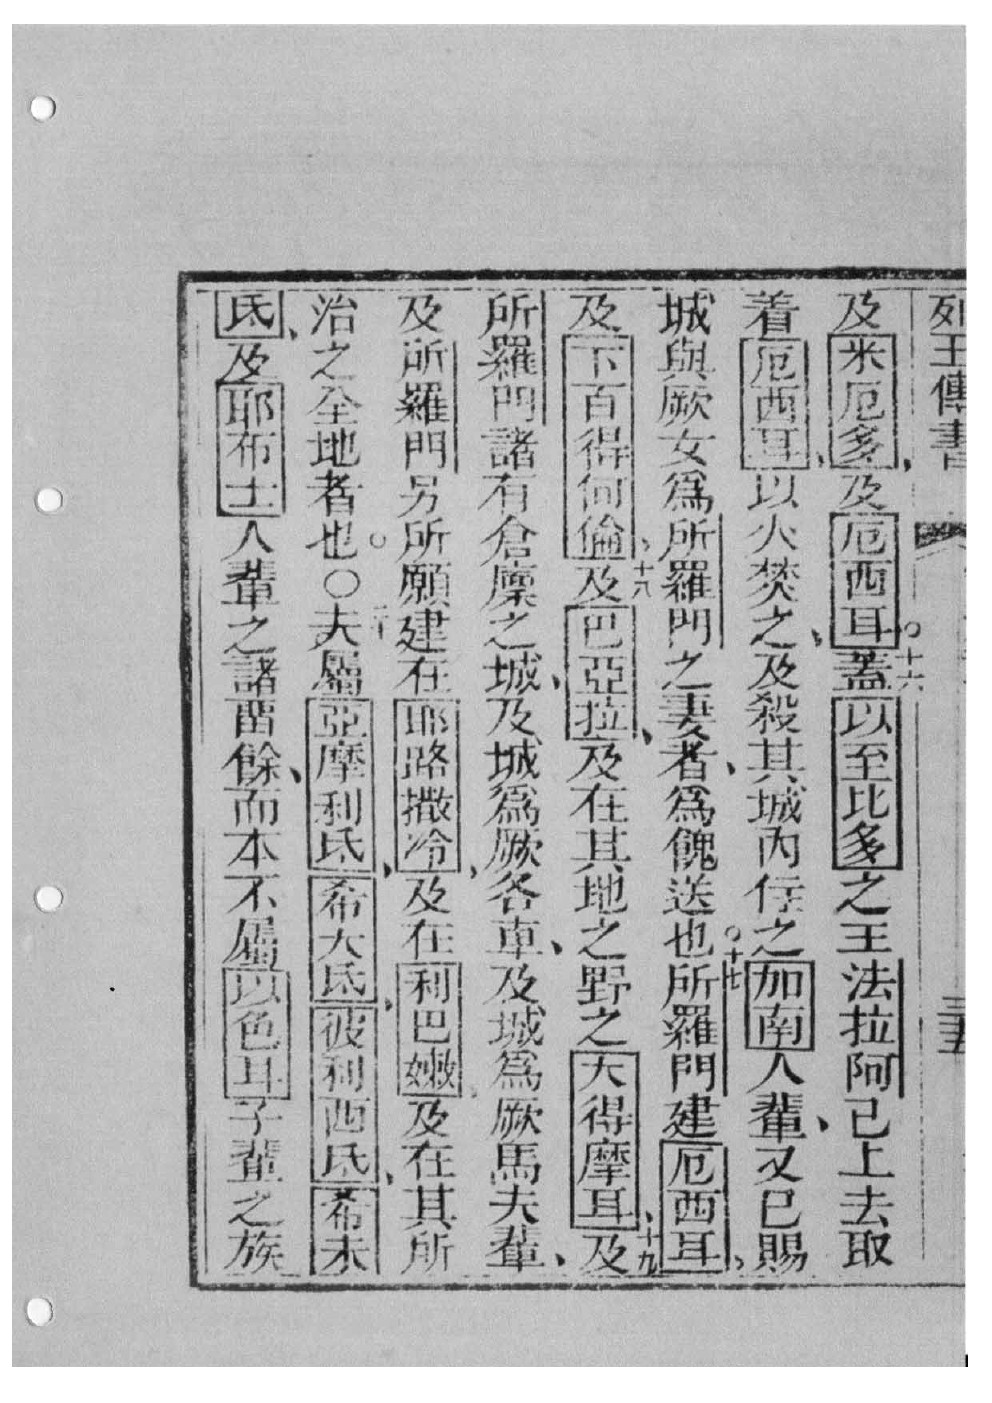 列王傳書 三五
及米厄多、及厄西耳。十六蓋以至比多之王法拉阿已上去取
着厄西耳、以火焚之、及殺其城內侍之加南人輩、又已賜
城與厥女爲所羅門之妻者、爲餽送也。十七所羅門建厄西耳、
及下百得何倫、十八及巴亞拉、及在其地之野之大得摩耳、十九及
所羅門諸有倉廩之城、及城爲厥各車、及城爲厥馬夫輩、
及所羅門另所願建在耶路撒冷、及在利巴嫩及在其所
治之全地者也。○二十夫屬亞摩利氐、希大氐、彼利西氐、希未
氐、及耶布士人輩之諸畱餘、而本不屬以色耳子輩之族